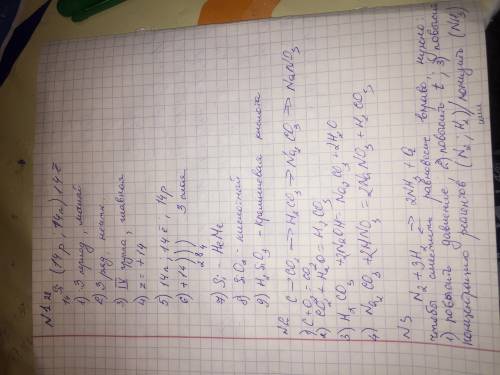 N1
28 Si (14p, 14n), 14ē
14
1) 3 период, малый
2) 3 ряд
3) IV группа, главная
4) z = +14
5) 14n, 14ē, 14p
6) +14 ) ) ) 3 слоя
2 8 4
7) Si - HeMe
8) SiO2 - кислотный
9) H2SiO3 - кремниевая кислота
N2 C → CO2 → H2CO3 → Na2CO3 → NaNO3
1) C + O2 = CO2
2) CO2 + H2O = H2CO3
3) H2CO3 + 2NaOH = Na2CO3 + 2H2O
4) Na2CO3 + 2HNO3 = 2NaNO3 + H2CO3
N3
N2 + 3H2 ⇄ 2NH3 + Q
Чтобы сместить равновесие вправо, нужно:
1) повысить давление, 2) повысить t, 3) повысить
концентрацию реагентов (N2; H2) / понизить (NH3)